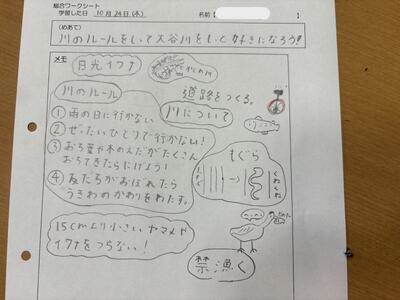 総合ワークシート
学習した日 10月24日(木)
名前
(めあて)
川のルールをしって大谷川をもっと好きになろう!
メモ
日光イワナ
川のルール
道路をつくる。
川について
① 雨の日に行かない
② ぜったいひとりで行かない!
③ おち葉や木のえだがたくさん
おちてきたらにげよう!
④ 友だちがおぼれたら
うきわのかわりをわたす。
もぐら
くねくね
15cmより小さいヤマメや
イワナをつらない!
禁漁く